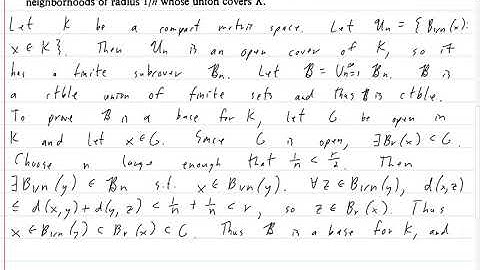 neighborhoods of radius 1/n whose union covers X.
Let K be a compact metric space. Let Un = { B1/n(x):
x ∈ K }. Then Un is an open cover of K, so it
has a finite subcover Bn. Let B = ∪∞n=1 Bn. B is
a ctble union of finite sets and thus B is ctble.
To prove B is a base for K, let G be open in
K and let x ∈ G. Since G is open, ∃Br(x) ⊂ G.
Choose n large enough that 1/n < r/2. Then
∃B1/n(y) ∈ Bn s.t. x ∈ B1/n(y). ∀z ∈ B1/n(y), d(x,z)
≤ d(x,y) + d(y,z) < 1/n + 1/n < r, so z ∈ Br(x). Thus
x ∈ B1/n(y) ⊂ Br(x) ⊂ G. Thus B is a base for K, and